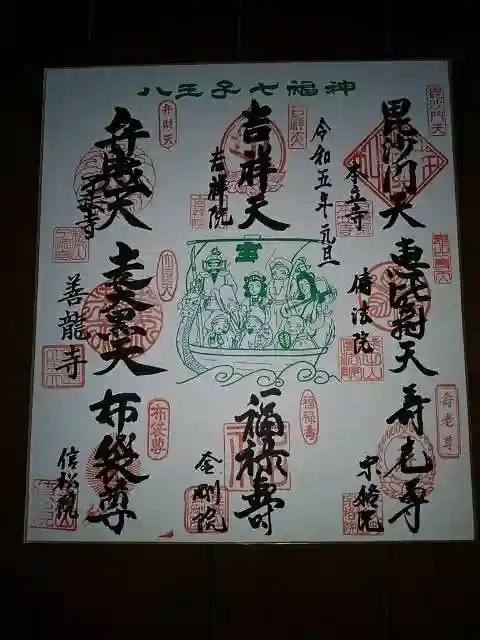 八王子七福神
毘沙門天
毘沙門天
本立寺
令和五年元旦
吉祥天
吉祥天
吉祥院
弁財天
弁戝天
了法寺
恵比寿天
恵比尉天
傳法院
宝
走大黒天
走大黒天
善龍寺
寿老尊
寿老尊
宗格院
福禄寿
福禄壽
金剛院
布袋尊
布袋尊
信松院